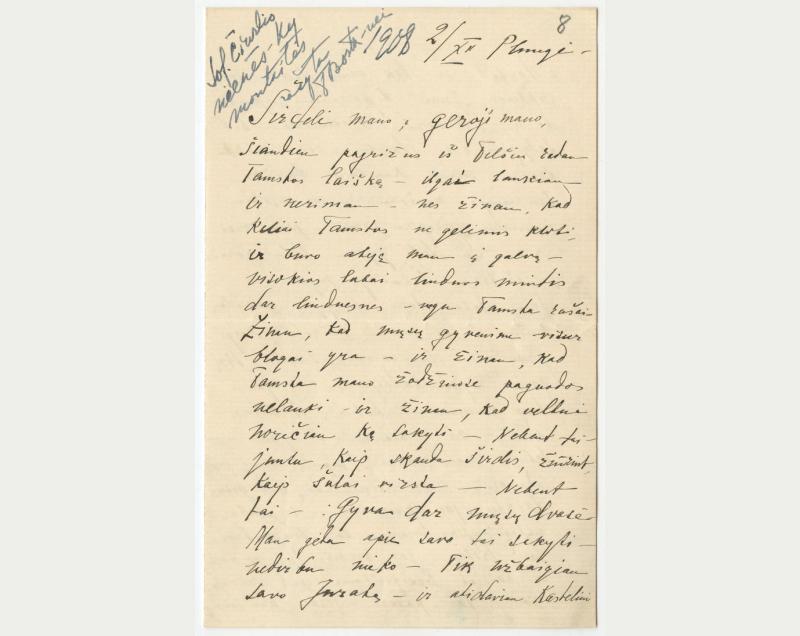 8
Sof. Čiurlio
nienės-Ky
mantaitės
rašyta
8 Bortk-nei
1908 2/XII Plungė –
Širdele mano, geroji mano,
šiandien pagrižus iš Telšių radau
Tamstos laišką – ilgai laukiau
ir nerimau – nes žinau, kad
keliai Tamstos ne gėlimis kloti,
ir buvo atėję man į galvą –
visokios labai liudnos mintis
dar liudnesnes – negu Tamsta rašai
Žinau, kad musų gyvenime visur
blogai yra – ir žinau, kad
Tamsta mano žodžiuose paguodos
nelauki – ir žinau, kad veltui
norėčiau ką sakyti – Nebent tai –
juntu, kaip skauda širdis, žiūrint,
kaip šalai virsta – Nebent
tai – : Gyva dar musų dvasė –
Man gėda apie save tai sakyti –
nedirbu nieko – Tik užbaigiau
savo Juratę – ir atidaviau Kastelini